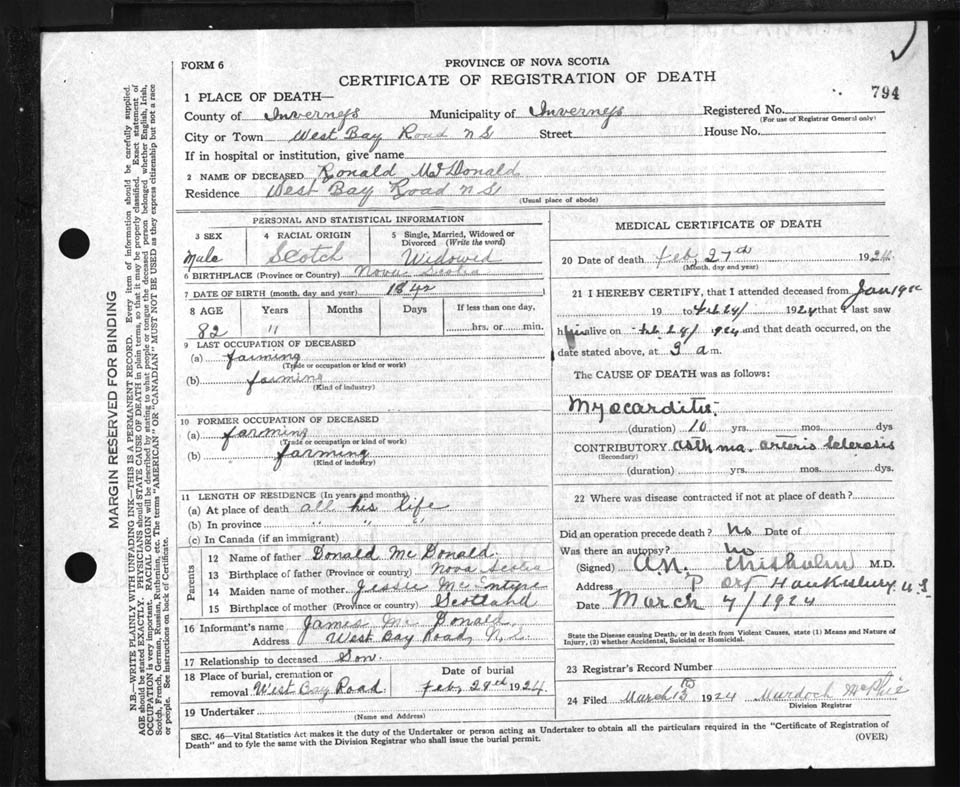 FORM 6
PROVINCE OF NOVA SCOTIA
CERTIFICATE OF REGISTRATION OF DEATH
794
1 PLACE OF DEATH—
County of Inverness Municipality of Inverness Registered No.
(For use of Registrar General only)
City or Town West Bay Road N S Street House No.
If in hospital or institution, give name
2 NAME OF DECEASED Ronald McDonald
Residence West Bay Road N S
(Usual place of abode)
MARGIN RESERVED FOR BINDING
N.B.—WRITE PLAINLY WITH UNFADING INK—THIS IS A PERMANENT RECORD. Every item of information should be carefully supplied.
AGE should be stated EXACTLY. PHYSICIANS should STATE CAUSE OF DEATH in plain terms, so that it may be properly classified. Exact statement of
OCCUPATION is very important. RACIAL ORIGIN will be described by stating to what people or tongue the deceased person belonged whether English, Irish,
Scotch, French, German, Russian, Ruthenian, etc. The terms "AMERICAN" OR "CANADIAN" MUST NOT BE USED as they express citizenship but not a race
or people. See instructions on back of Certificate.
PERSONAL AND STATISTICAL INFORMATION
3 SEX 4 RACIAL ORIGIN 5 Single, Married, Widowed or
Divorced (Write the word)
Male Scotch Widowed
6 BIRTHPLACE (Province or Country) Nova Scotia
7 DATE OF BIRTH (month, day and year) 1842
8 AGE Years Months Days If less than one day,
82 " hrs. or min.
9 LAST OCCUPATION OF DECEASED
(a) farming
(Trade or occupation or kind or work)
(b) farming
(Kind of industry)
10 FORMER OCCUPATION OF DECEASED
(a) farming
(Trade or occupation or kind of work)
(b) farming
(Kind of industry)
11 LENGTH OF RESIDENCE (In years and months)
(a) At place of death all his life
(b) In province " " "
(c) In Canada (if an immigrant)
Parents
12 Name of father Donald McDonald
13 Birthplace of father (Province or country) Nova Scotia
14 Maiden name of mother Jessie McIntyre
15 Birthplace of mother (Province or country) Scotland
16 Informant's name James McDonald
Address West Bay Road, N.S.
17 Relationship to deceased Son
18 Place of burial, cremation or Date of burial
removal West Bay Road Feb 29th 1924
19 Undertaker
(Name and Address)
MEDICAL CERTIFICATE OF DEATH
20 Date of death Feb, 27th 1924
(Month, day and year)
21 I HEREBY CERTIFY, that I attended deceased from Jan
19 to Feb 24/ 1924 that I last saw
h alive on Feb. 24/ 1924 and that death occurred, on the
date stated above, at 3 a.m.
The CAUSE OF DEATH was as follows:
Myocarditis
(duration) 10 yrs. mos. dys
CONTRIBUTORY asthma. arterio sclerosis
(Secondary)
(duration) yrs. mos. dys.
22 Where was disease contracted if not at place of death?
Did an operation precede death? no Date of
Was there an autopsy? no
(Signed) Chisholm M.D.
Address Port Hawkesbury N.S
Date March 7/1924
State the Disease causing Death, or in death from Violent Causes, state (1) Means and Nature of
Injury, (2) whether Accidental, Suicidal or Homicidal.
23 Registrar's Record Number
24 Filed March 13th 1924 Murdoch McPhie
Division Registrar
SEC. 46—Vital Statistics Act makes it the duty of the Undertaker or person acting as Undertaker to obtain all the particulars required in the "Certificate of Registration of
Death" and to fyle the same with the Division Registrar who shall issue the burial permit.
(OVER)